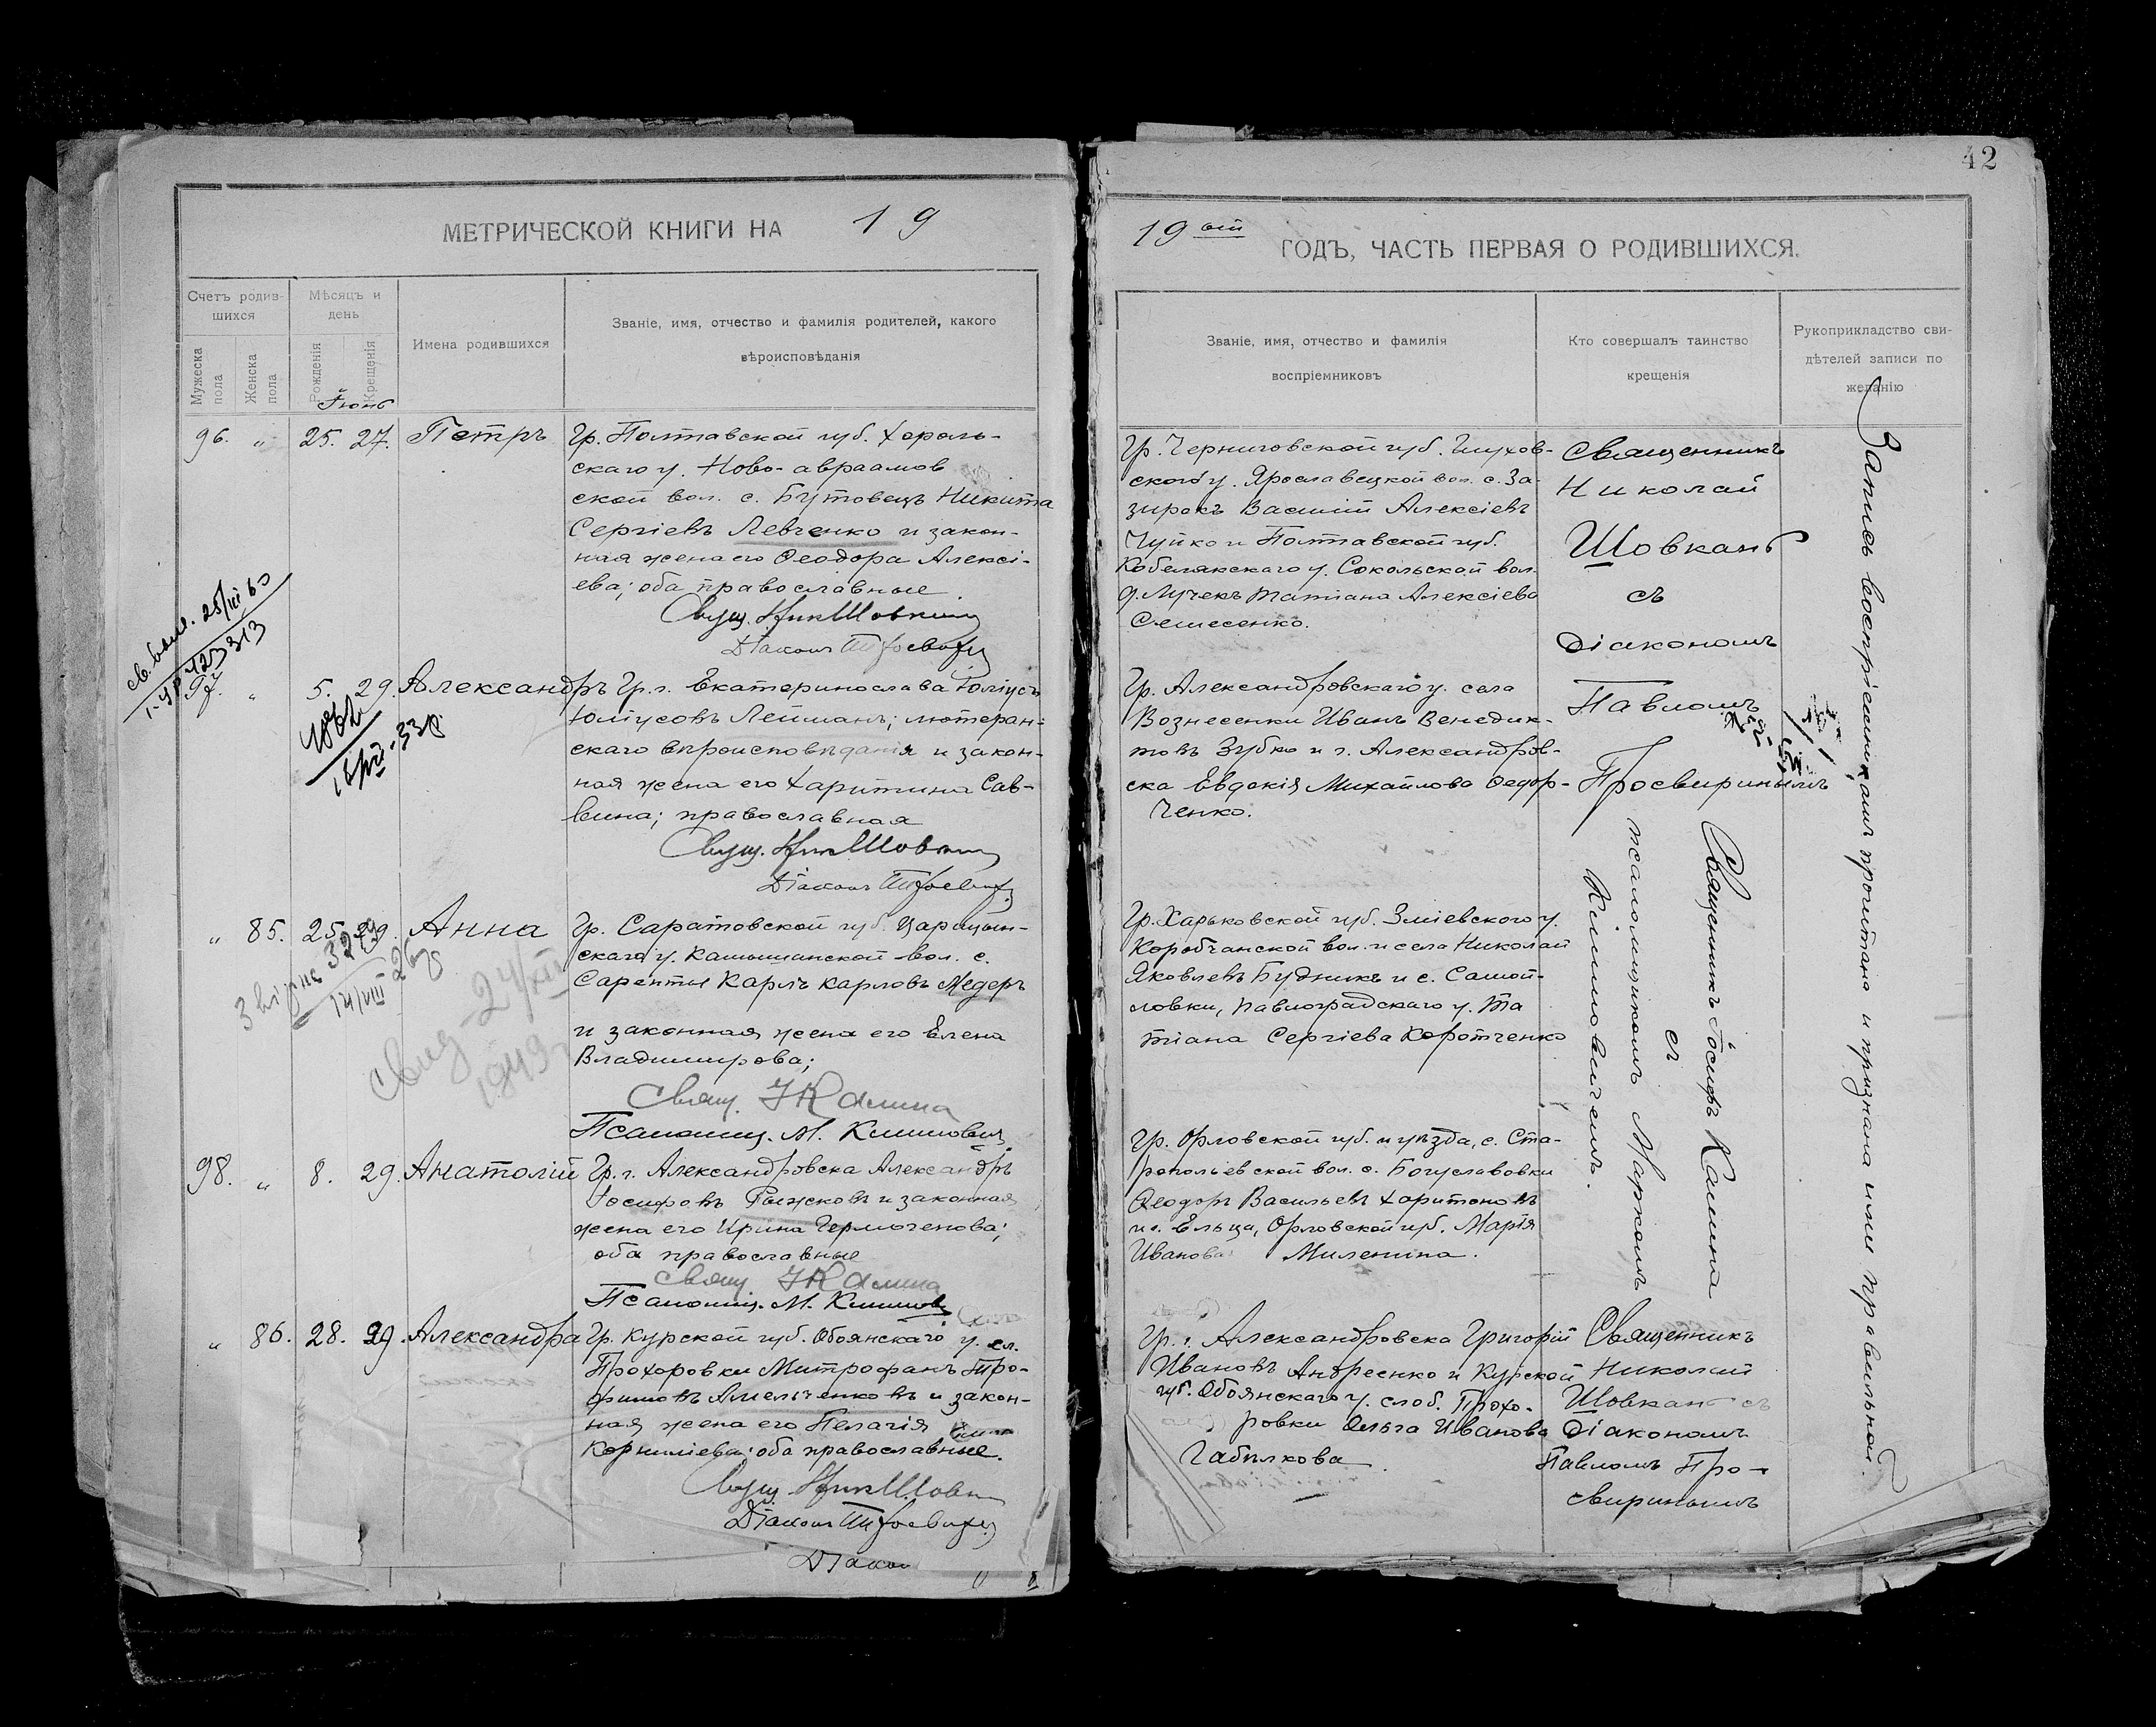 42
МЕТРИЧЕСКОЙ КНИГИ НА 19
19 ый ГОДЪ, ЧАСТЬ ПЕРВАЯ О РОДИВШИХСЯ.
Счетъ родив-
шихся
Мужеска пола
Женска пола
Мѣсяцъ и
день
Рожденія
Крещенія
Имена родившихся
Званіе, имя, отчество и фамилія родителей, какого
вѣроисповѣданія
Званіе, имя, отчество и фамилія
воспріемниковъ
Кто совершалъ таинство
крещенія
Рукоприкладство сви-
дѣтелей записи по
желанію
96. „ 25. 27. Петръ
Гр. Полтавской губ. Хороль-
скаго у. Ново-авраамов
ской вол. с. Бутовецъ Никита
Сергіевъ Левченко и закон-
ная жена его Ѳеодора Алексі-
ева; оба православные
Гр. Черниговской губ. Глухов-
ского у. Ярославецкой вол. с. За-
зирокъ Василій Алексіевъ
Чуйко и Полтавской губ.
Кобелякскаго у. Сокольской вол.
д. Лучекъ Татіана Алексіева
Семесенко.
Священникъ
Николай
Шовканъ
съ
Діакономъ
Павломъ
Просвиринымъ
97. „ 5. 29. Александръ
Гр. г. Екатеринослава Юліусъ
Юліусовъ Лейманъ; лютеран-
скаго вѣроисповѣданія и закон-
ная жена его Харитина Сав-
вина; православная
Гр. Александровскаго у. села
Вознесенки Иванъ Венедик-
товъ Зубко и г. Александров-
ска Евдокія Михайлова Федор-
ченко.
„ 85. 25. 29. Анна
Гр. Саратовской губ. Царицын-
скаго у. Камышанской вол. с.
Сарепты Карлъ Карловъ Медеръ
и законная жена его Елена
Владимирова;
Свящ. І Калина
Псаломщ. М. Климович
Гр. Харьковской губ. Зміевского у.
Коробчанской вол. и села Николай
Яковлевъ Будникъ и с. Самой-
ловки, Павлоградскаго у. Та
тіана Сергіева Коротченко
Священникъ Іосифъ Калина
съ
псаломщикомъ Маркомъ
Климовичемъ.
свид 24/XII
1943
98. „ 8. 29. Анатолій
Гр. г. Александровска Александръ
Іосифовъ Рыжковъ и законная
жена его Ирина Гермогенова;
оба православные
Свящ. І Калина
Псаломщ. М. Климович
Гр. Орловской губ. и уѣзда, с. Ста-
ропольевской вол. с. Богуславовки
Ѳеодоръ Васильевъ Харитоновъ
и г. Ельца, Орловской губ. Марія
Иванова Миленина.
„ 86. 28. 29. Александра
Гр. Курской губ. Обоянскаго у. сл.
Прохоровки Митрофанъ Тро-
фимовъ Амельченковъ и закон-
ная жена его Пелагія
Корниліева; оба православные.
Гр. г. Александровска Григорій
Ивановъ Андреенко и Курской
губ. Обоянскаго у. слоб. Прохо-
ровки Ольга Иванова
Габелкова
Священникъ
Николай
Шовкан съ
Діакономъ
Павломъ Про-
свириномъ
Запись воспріемникамъ прочитана и признана ими правильной.